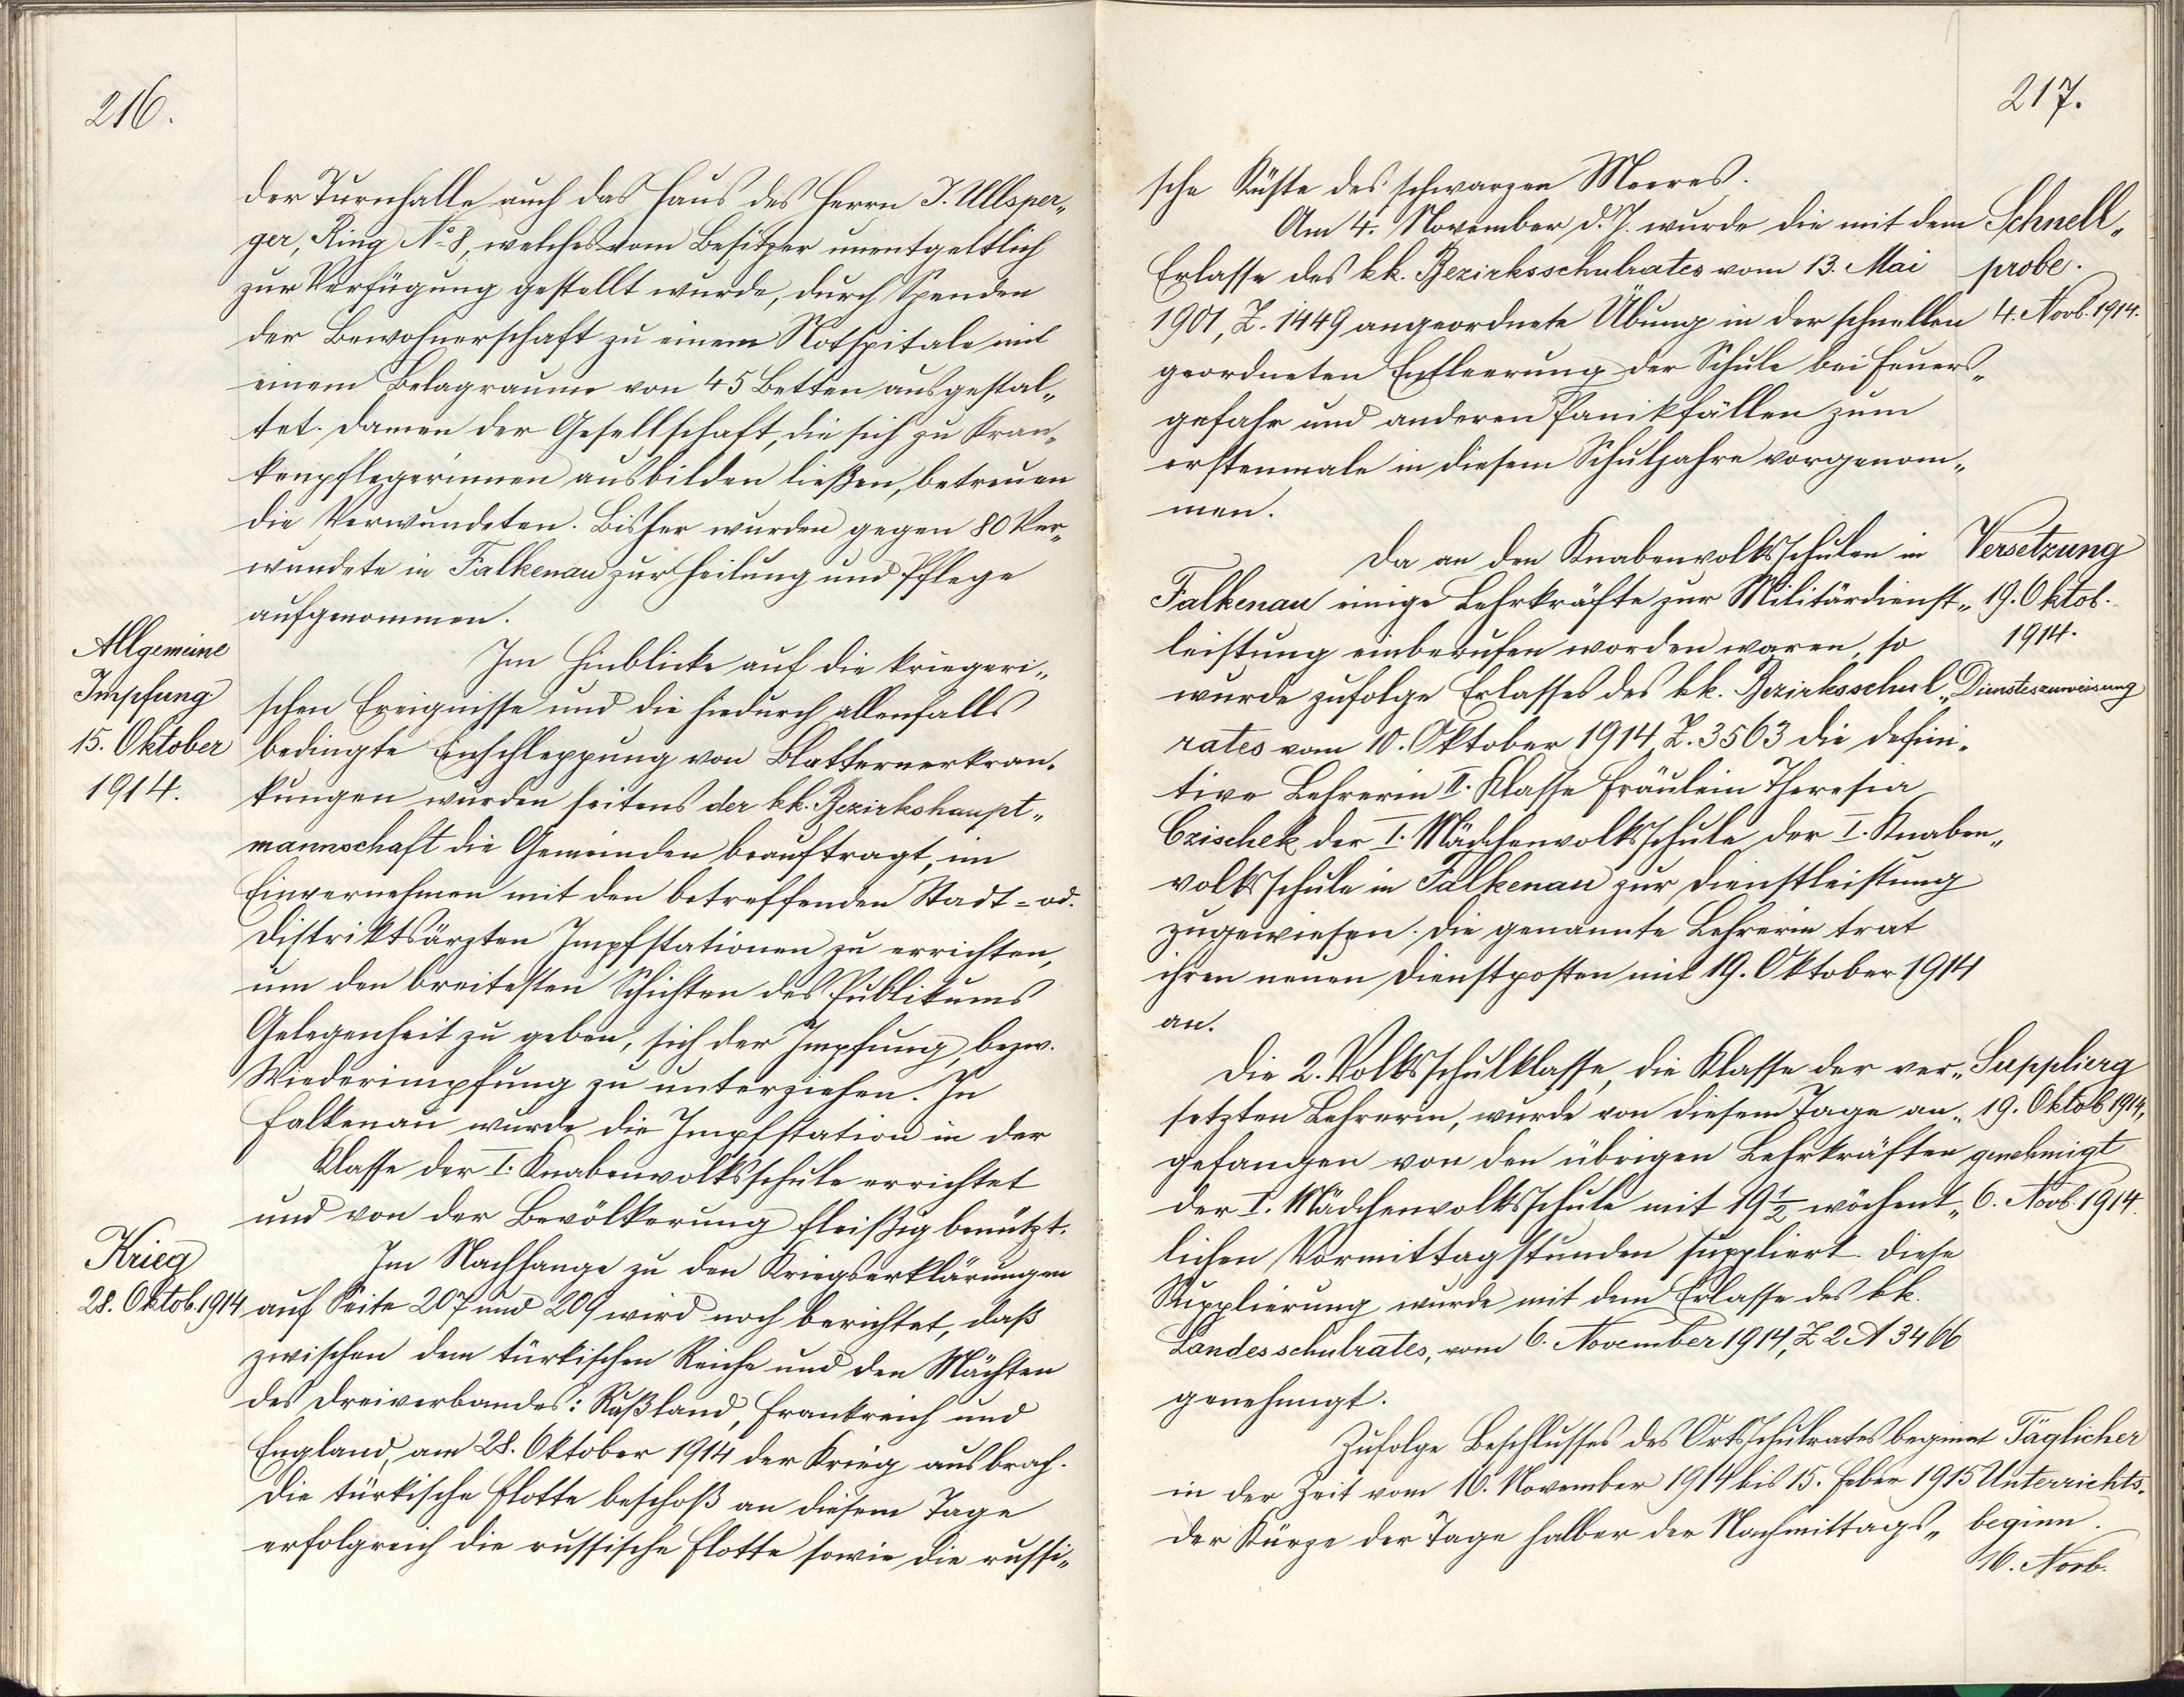 216.
der Turnhalle auch das Haus des Herrn J. Ullsper„
ger, Ring No 8, welches vom Besitzer unentgeltlich
zur Verfügung gestellt wurde, durch Spenden
der Bewohnerschaft zu einem Notspitale mit
einem Belagraume von 45 Betten ausgestal„
tet. Damen der Gesellschaft, die sich zu Kran„
kenpflegerinnen ausbilden ließen, betreuen
die Verwundeten. Bisher wurden gegen 80 Ver„
wundete in Falkenau zur Heilung und Pflege
aufgenommen.
Allgemeine
Impfung
15. Oktober
1914.
Im Hinblicke auf die kriegeri„
schen Ereignisse und die hiedurch allenfalls
bedingte Einschleppung von Blatternerkran„
kungen wurden seitens der kk. Bezirkshaupt„
mannschaft die Gemeinden beauftragt, im
Einvernehmen mit den betreffenden Stadt- od.
Distriktsärzten Impfstationen zu errichten,
um den breitesten Schichten des Publikums
Gelegenheit zu geben, sich der Impfung, bezw.
Wiederimpfung zu unterziehen. In
Falkenau wurde die Impfstation in der
Klasse der I. Knabenvolksschule errichtet
und von der Bevölkerung fleißig benützt.
Krieg
28. Oktob. 1914
Im Nachhange zu den Kriegserklärungen
auf Seite 207 und 209 wird noch berichtet, daß
zwischen dem türkischen Reiche und den Mächten
des Dreiverbandes: Rußland, Frankreich und
England, am 28. Oktober 1914 der Krieg ausbrach.
Die türkische Flotte beschoß an diesem Tage
erfolgreich die russische Flotte sowie die russi„
217.
sche Küste des schwarzen Meeres.
Am 4. November d. J. wurde die mit dem
Erlasse des kk. Bezirksschulrates vom 13. Mai
1901, Z. 1449 angeordnete Übung in der schnellen
geordneten Entleerung der Schule bei Feuers„
gefahr und anderen Panikfällen zum
erstenmale in diesem Schuljahre vorgenom„
men.
Schnell„
probe.
4. Novb. 1914.
Da an den Knabenvolksschulen in
Falkenau einige Lehrkräfte zur Militärdienst„
leistung einberufen worden waren, so
wurde zufolge Erlasses des kk. Bezirksschul„
rates vom 10. Oktober 1914, Z. 3563 die defini„
tive Lehrerin II. Klasse Fräulein Theresia
Czischek der I. Mädchenvolksschule der I. Knaben„
volksschule in Falkenau zur Dienstleistung
zugewiesen. Die genannte Lehrerin trat
ihren neuen Dienstposten mit 19. Oktober 1914
an.
Versetzung
19. Oktob.
1914.
Diensteszuweisung
Die 2. Volksschulklasse, die Klasse der ver„
setzten Lehrerin, wurde von diesem Tage an„
gefangen von den übrigen Lehrkräften
der I. Mädchenvolksschule mit 19 1/2 wöchent„
lichen Vormittagstunden suppliert. Diese
Supplierung wurde mit dem Erlasse des kk.
Landesschulrates, vom 6. November 1914, Z 2 A 3466
genehmigt.
Supplierg
19. Oktob 1914,
genehmigt
6. Novb. 1914.
Zufolge Beschlusses des Ortsschulrates beginnt
in der Zeit vom 16. November 1914 bis 15. Feber 1915
der Kürze der Tage halber der Nachmittags„
Täglicher
Unterrichts„
beginn.
16. Novb.